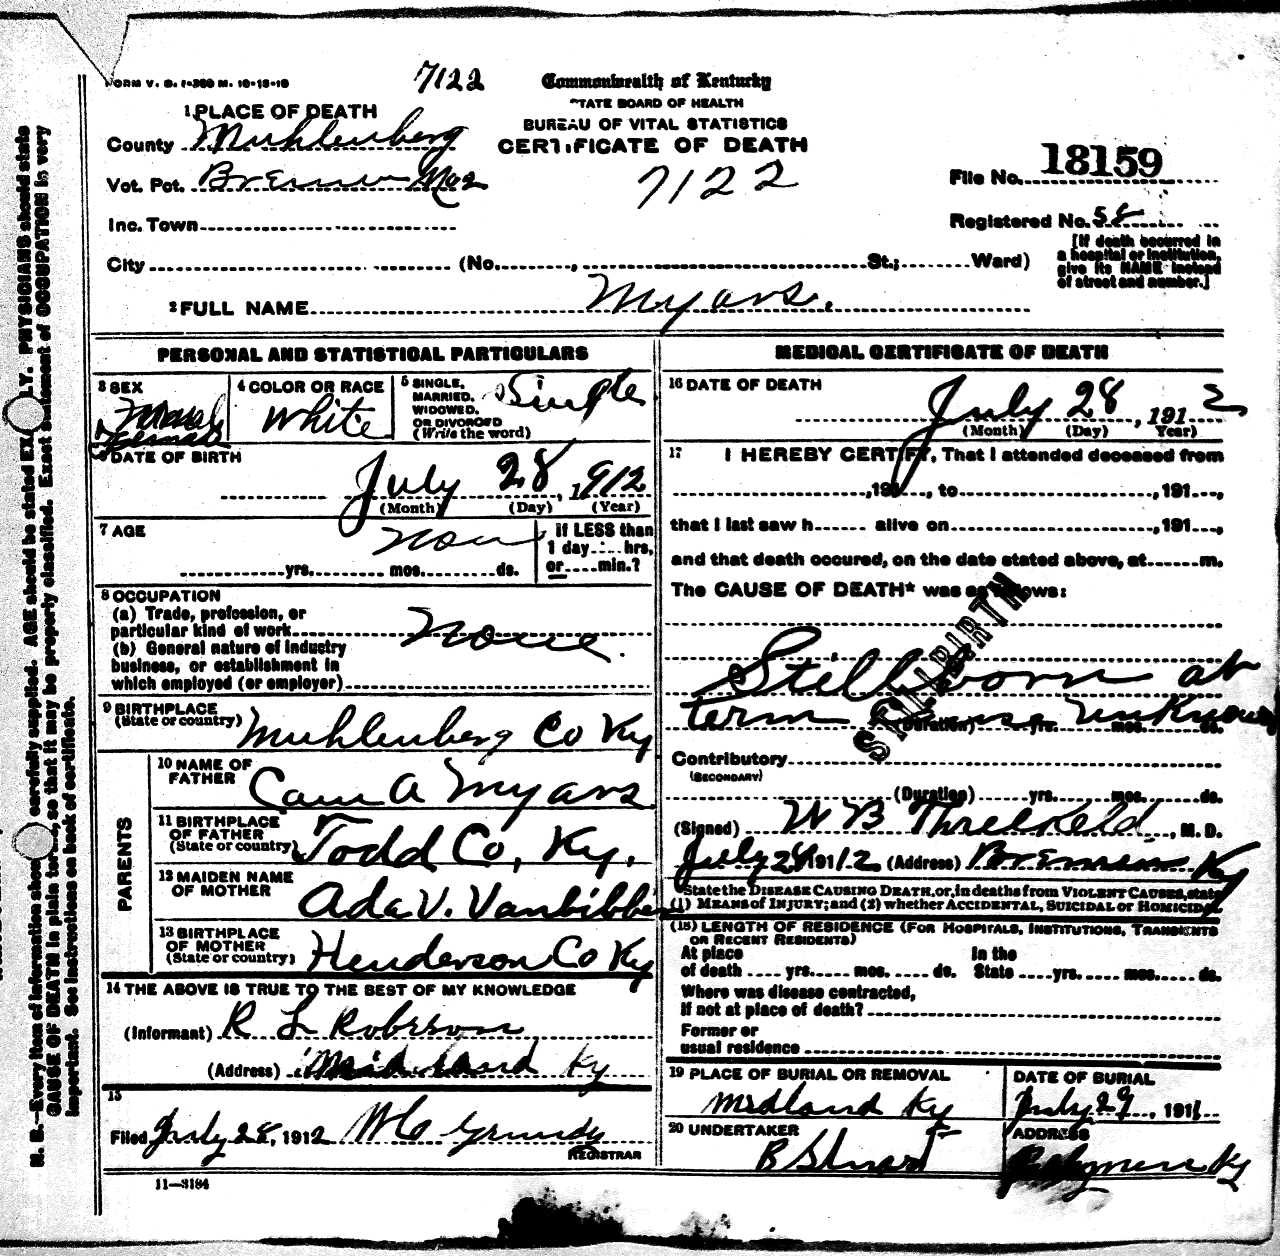 FORM V. S. 1-300 M. 10-15-10
7122
Commonwealth of Kentucky
STATE BOARD OF HEALTH
BUREAU OF VITAL STATISTICS
CERTIFICATE OF DEATH
7122
1 PLACE OF DEATH
County Muhlenberg
Vot. Pct. Bremen
Inc. Town
City (No. , St.; Ward)
File No. 18159
Registered No. 58
[If death occurred in
a hospital or institution,
give its NAME instead
of street and number.]
2 FULL NAME Myars.
PERSONAL AND STATISTICAL PARTICULARS
3 SEX
Female
4 COLOR OR RACE
White
5 SINGLE,
MARRIED,
WIDOWED,
OR DIVORCED
(Write the word)
Single
6 DATE OF BIRTH
July 28, 1912
(Month) (Day) (Year)
7 AGE
yrs. mos. ds.
If LESS than
1 day hrs.
or min.?
8 OCCUPATION
(a) Trade, profession, or
particular kind of work None.
(b) General nature of industry
business, or establishment in
which employed (or employer)
9 BIRTHPLACE
(State or country) Muhlenberg Co Ky
PARENTS
10 NAME OF
FATHER Cam A Myars
11 BIRTHPLACE
OF FATHER
(State or country) Todd Co, Ky.
12 MAIDEN NAME
OF MOTHER Ada V. Vanbibber
13 BIRTHPLACE
OF MOTHER
(State or country) Henderson Co Ky
14 THE ABOVE IS TRUE TO THE BEST OF MY KNOWLEDGE
(Informant) R L Roberson
(Address) Midland Ky
15
Filed July 28, 1912 Grundy
REGISTRAR
11—3184
MEDICAL CERTIFICATE OF DEATH
16 DATE OF DEATH
July 28, 1912
(Month) (Day) (Year)
17 I HEREBY CERTIFY, That I attended deceased from
, 191 , to , 191 ,
that I last saw h alive on , 191 ,
and that death occured, on the date stated above, at m.
The CAUSE OF DEATH* was as follows:
STILLBIRTH
Stillborn at
term Cause unknown
(Duration) yrs. mos. ds.
Contributory
(SECONDARY)
(Duration) yrs. mos. ds.
(Signed) W B Threlkeld, M. D.
July 28 1912 (Address) Bremen Ky
*State the DISEASE CAUSING DEATH, or, in deaths from VIOLENT CAUSES, state
(1) MEANS OF INJURY; and (2) whether ACCIDENTAL, SUICIDAL or HOMICIDAL
(18) LENGTH OF RESIDENCE (FOR HOSPITALS, INSTITUTIONS, TRANSIENTS
OR RECENT RESIDENTS)
At place
of death yrs. mos. ds.
In the
State yrs. mos. ds.
Where was disease contracted,
If not at place of death?
Former or
usual residence
19 PLACE OF BURIAL OR REMOVAL
Midland Ky
DATE OF BURIAL
July 29, 191
20 UNDERTAKER
ADDRESS
Ky
N. B.—Every item of information should be carefully supplied. AGE should be stated EXACTLY. PHYSICIANS should state
CAUSE OF DEATH in plain terms, so that it may be properly classified. Exact statement of OCCUPATION is very
important. See instructions on back of certificate.